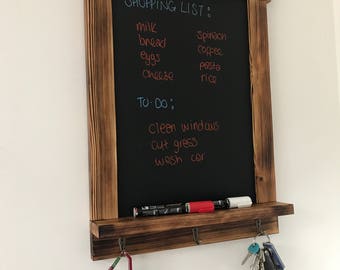 SHOPPING LIST:
milk spinach
bread coffee
eggs pasta
cheese rice
TO-DO:
clean windows
cut grass
wash car